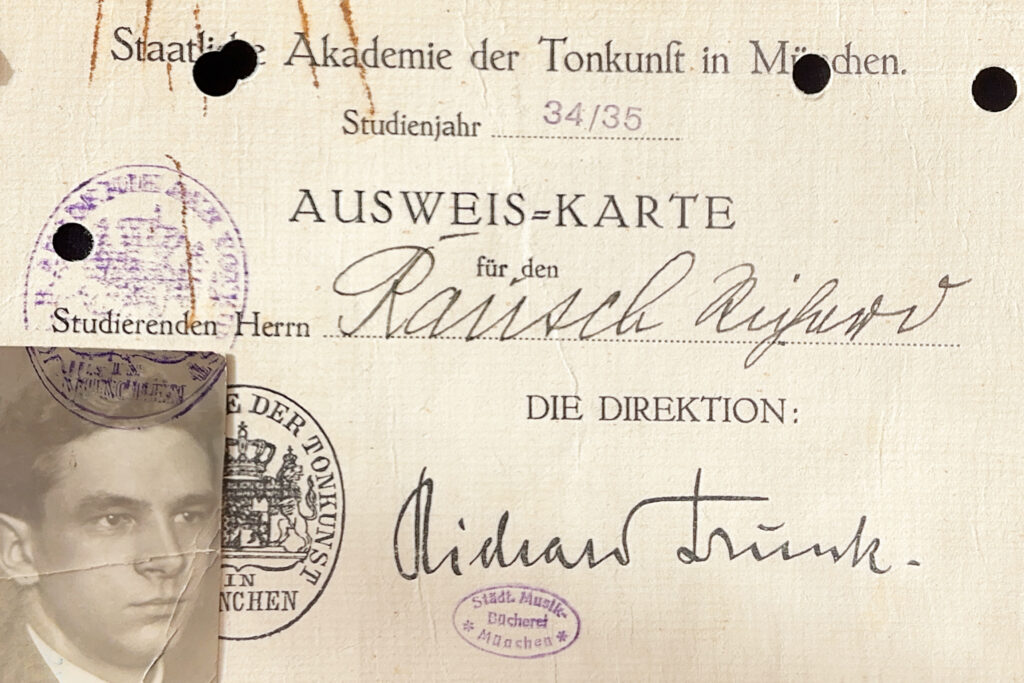 Staatliche Akademie der Tonkunst in München.
Studienjahr 34/35
AUSWEIS=KARTE
für den
Studierenden Herrn Rausch Richard
DIE DIREKTION:
Richard Trunk.
E DER TONKUNST
IN
NCHEN
IN
MÜNCHEN
Städt. Musik-
Bücherei
* München *